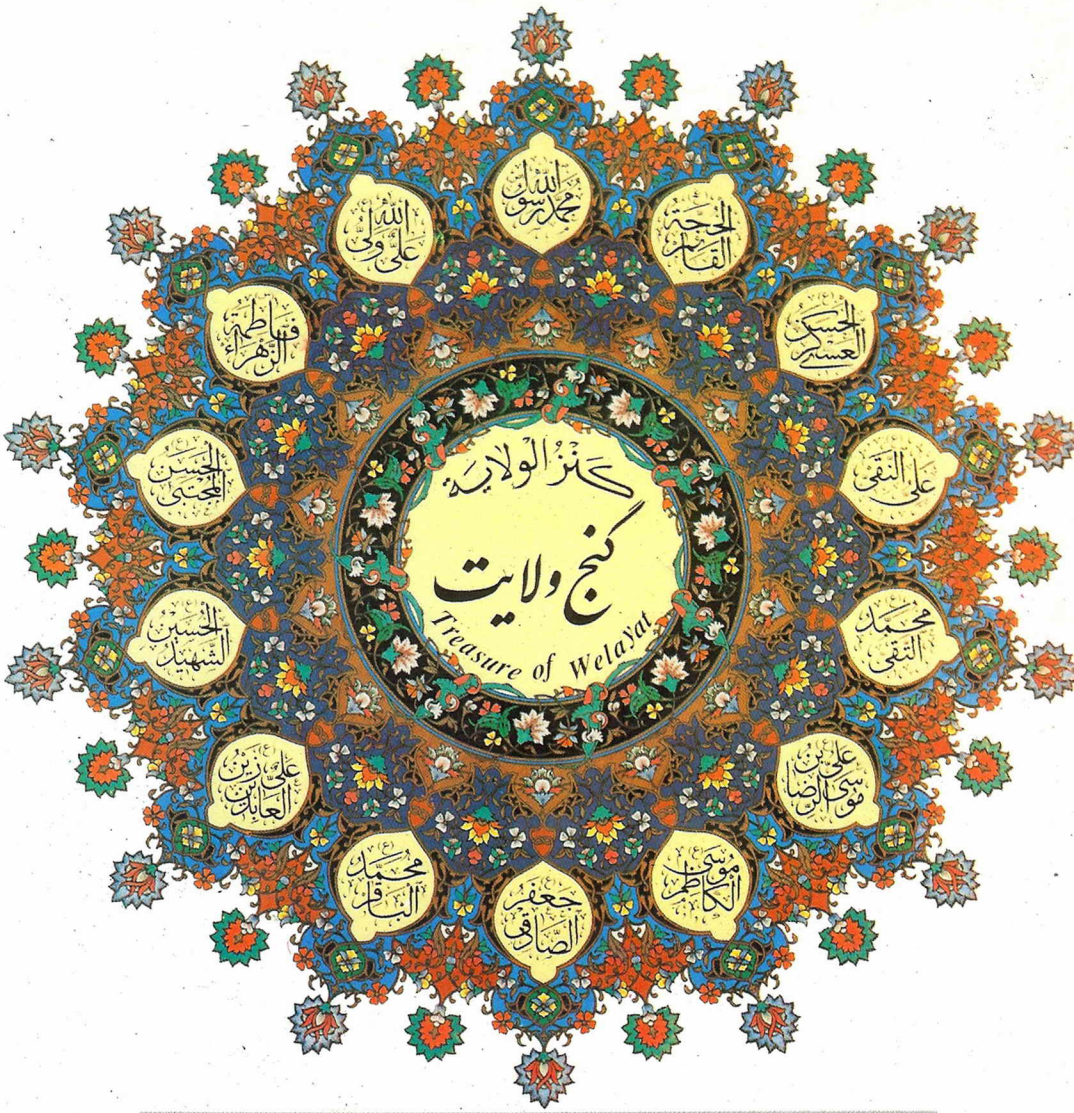 كَنْزُ الْوِلايَة
گنج ولایت
Treasure of Welayat
محمد رسول الله
علی ولی الله
فاطمة الزهراء
الحسن المجتبی
الحسین الشهید
علی زین العابدین
محمد الباقر
جعفر الصادق
موسی الکاظم
علی بن موسی الرضا
محمد التقی
علی النقی
الحسن العسکری
الحجة القائم